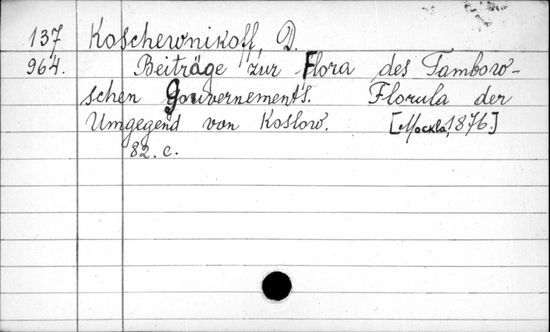 137 Koschewnikoff, D.
964. Beiträge zur Flora des Tambow-
schen Gouvernement's. Florula der
Umgegend von Koslow. [Москва, 1876.]
82. с.